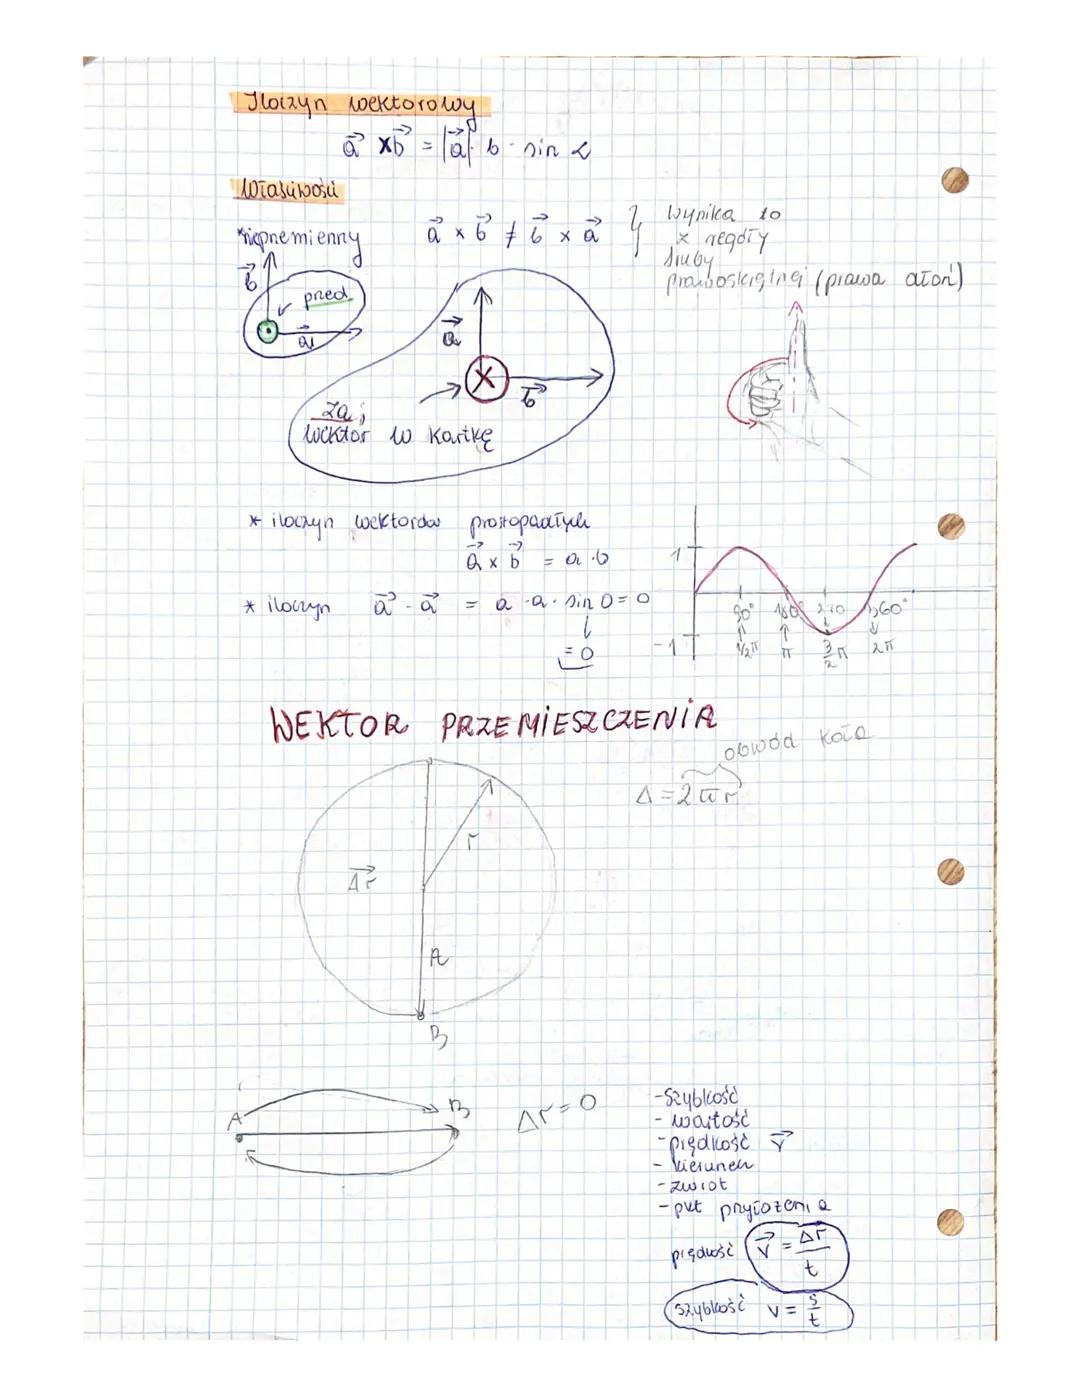 Iloczyn wektorowy
a⃗ × b⃗ = |a⃗| · b · sin α
Właściwości
*nieprzemienny
a⃗ × b⃗ ≠ b⃗ × a⃗
wynika to
z reguły
śruby
prawoskrętnej (prawa dłoń)
b⃗
przed
a⃗
a⃗
X
b⃗
za;
wektor w kartkę
* iloczyn wektorów prostopadłych
a⃗ × b⃗ = a · b
* iloczyn a⃗ · a⃗ = a · a · sin 0 = 0
= 0
1
90° 180° 270 360°
-1
1/2π π 3/2 π 2π
WEKTOR PRZEMIESZCZENIA
obwód koła
Δ = 2πr
r
Δr⃗
A
B
A B
Δr = 0
- szybkość
- wartość
- prędkość v⃗
- kierunek
- zwrot
- pkt przyłożenia
prędkość v⃗ = Δr⃗ / t
szybkość v = s / t